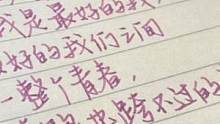 我是最好的我
好的我们之间
一整个青春,
跨不过的